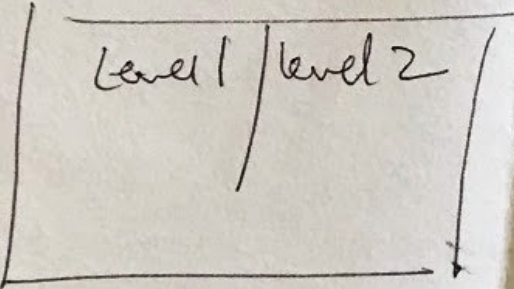 Level 1 | level 2